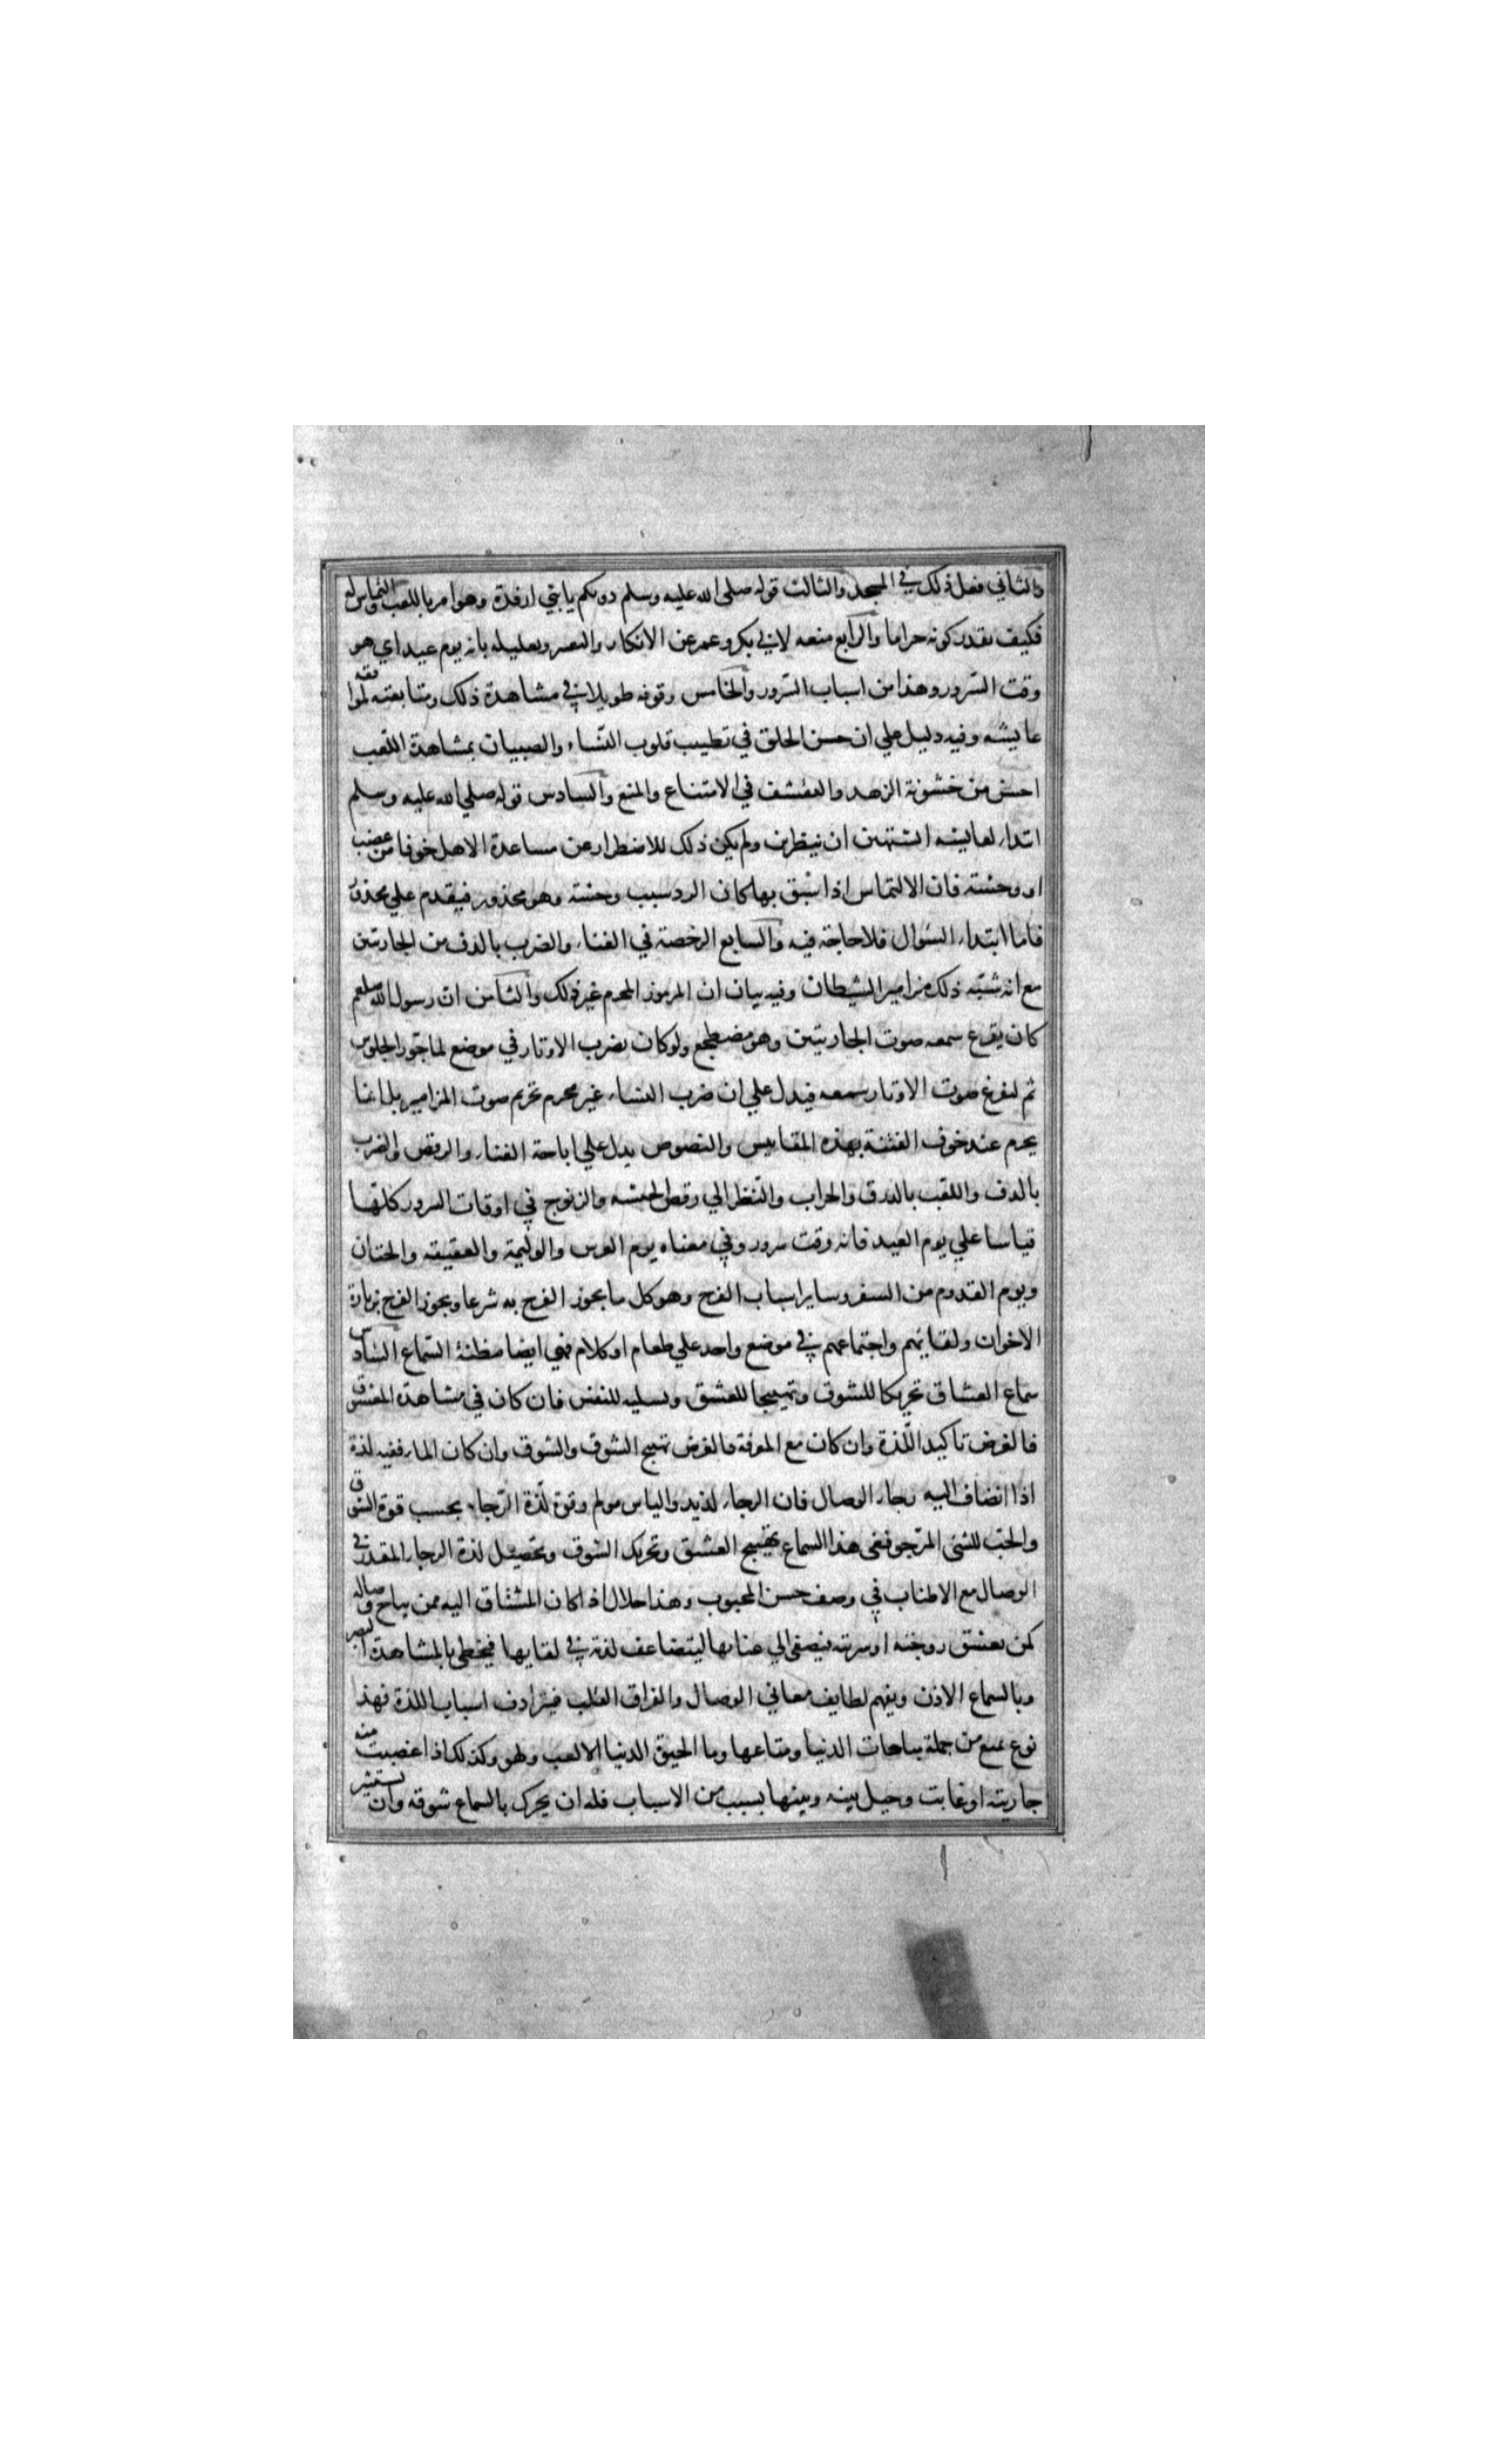 والثاني فعل ذلك في المسجد والثالث قوله صلى الله عليه وسلم دونكم يا بني ارفدة وهو امر باللعب والتماس له
فكيف يقدر كونه حراما والرابع منعه لابي بكر وعمر عن الانكار والتغيير وتعليله بانه يوم عيد اي هو
وقت السرور وهذا من اسباب السرور والخامس وقوفه طويلا في مشاهدة ذلك ومتابعته لموافقة
عايشه وفيه دليل علي ان حسن الخلق في تطييب قلوب النساء والصبيان بمشاهدة اللعب
احسن من خشونة الزهد والتقشف في الامتناع والمنع والسادس قوله صلي الله عليه وسلم
ابتداء لعايشه اتشتهين ان تنظرين ولم يكن ذلك للاضطرار عن مساعدة الاهل خوفا من غضب
او وحشته فان الالتماس اذا سبق بها كان الرد سبب وحشته وهو محذور فيقدم علي محذور
فاما ابتداء السوال فلا حاجة فيه والسابع الرخصة في الغناء والضرب بالدف من الجاريتين
مع انه شبه ذلك مزامير الشيطان وفيه بيان ان المزمور المحرم غير ذلك والثامن ان رسول الله صلعم
كان يقرع سمعه صوت الجاريتين وهو مضطجع ولو كان يضرب الاوتار في موضع لما جوز الجلوس
ثم لقرع صوت الاوتار سمعه فيدل علي ان ضرب النساء غير محرم تحريم صوت المزامير بل انما
يحرم عند خوف الفتنة بهذه المقاييس والنصوص يدل علي اباحة الغناء والرقص والضرب
بالدف واللعب بالدرق والحراب والنظر الي رقص الحبشه والزنوج في اوقات السرور كلها
قياسا علي يوم العيد فانه وقت سرور وفي معناه يوم العرس والوليمة والعقيقه والختان
ويوم القدوم من السفر وساير اسباب الفرح وهو كل ما يجوز الفرح به شرعا ويجوز الفرح بزيارة
الاخوان ولقايهم واجتماعهم في موضع واحد علي طعام او كلام فهي ايضا مظنة السماع السادس
سماع العشاق تحريكا للشوق وتهييجا للعشق وتسليه للنفس فان كان في مشاهدة المعشوق
فالغرض تاكيد اللذة وان كان مع المفرقة فالغرض تهيج الشوق والشوق وان كان الما ففيه لذة
اذا انضاف اليه رجاء الوصال فان الرجاء لذيذ والياس مولم وقوة لذة الرجاء بحسب قوة الشوق
والحب للشئ المرجو ففي هذا السماع تهييج العشق وتحريك الشوق وتحصيل لذة الرجاء المقدر في
الوصال مع الاطناب في وصف حسن المحبوب وهذا حلال اذا كان المشتاق اليه ممن يباح وصاله
كمن يعشق زوجته او سريته فيصغي الي غنايها ليتضاعف لذته في لقايها فيحظي بالمشاهدة البصر
وبالسماع الاذن ويفهم لطايف معاني الوصال والفراق القلب فيترادف اسباب اللذة فهذ
نوع تمتع من جملة مباحات الدنيا ومتاعها وما الحيوة الدنيا الا لعب ولهو وكذلك اذا غصبت منه
جاريته او غابت وحيل بينه وبينها بسبب من الاسباب فله ان يحرك بالسماع شوقه وان يستثير